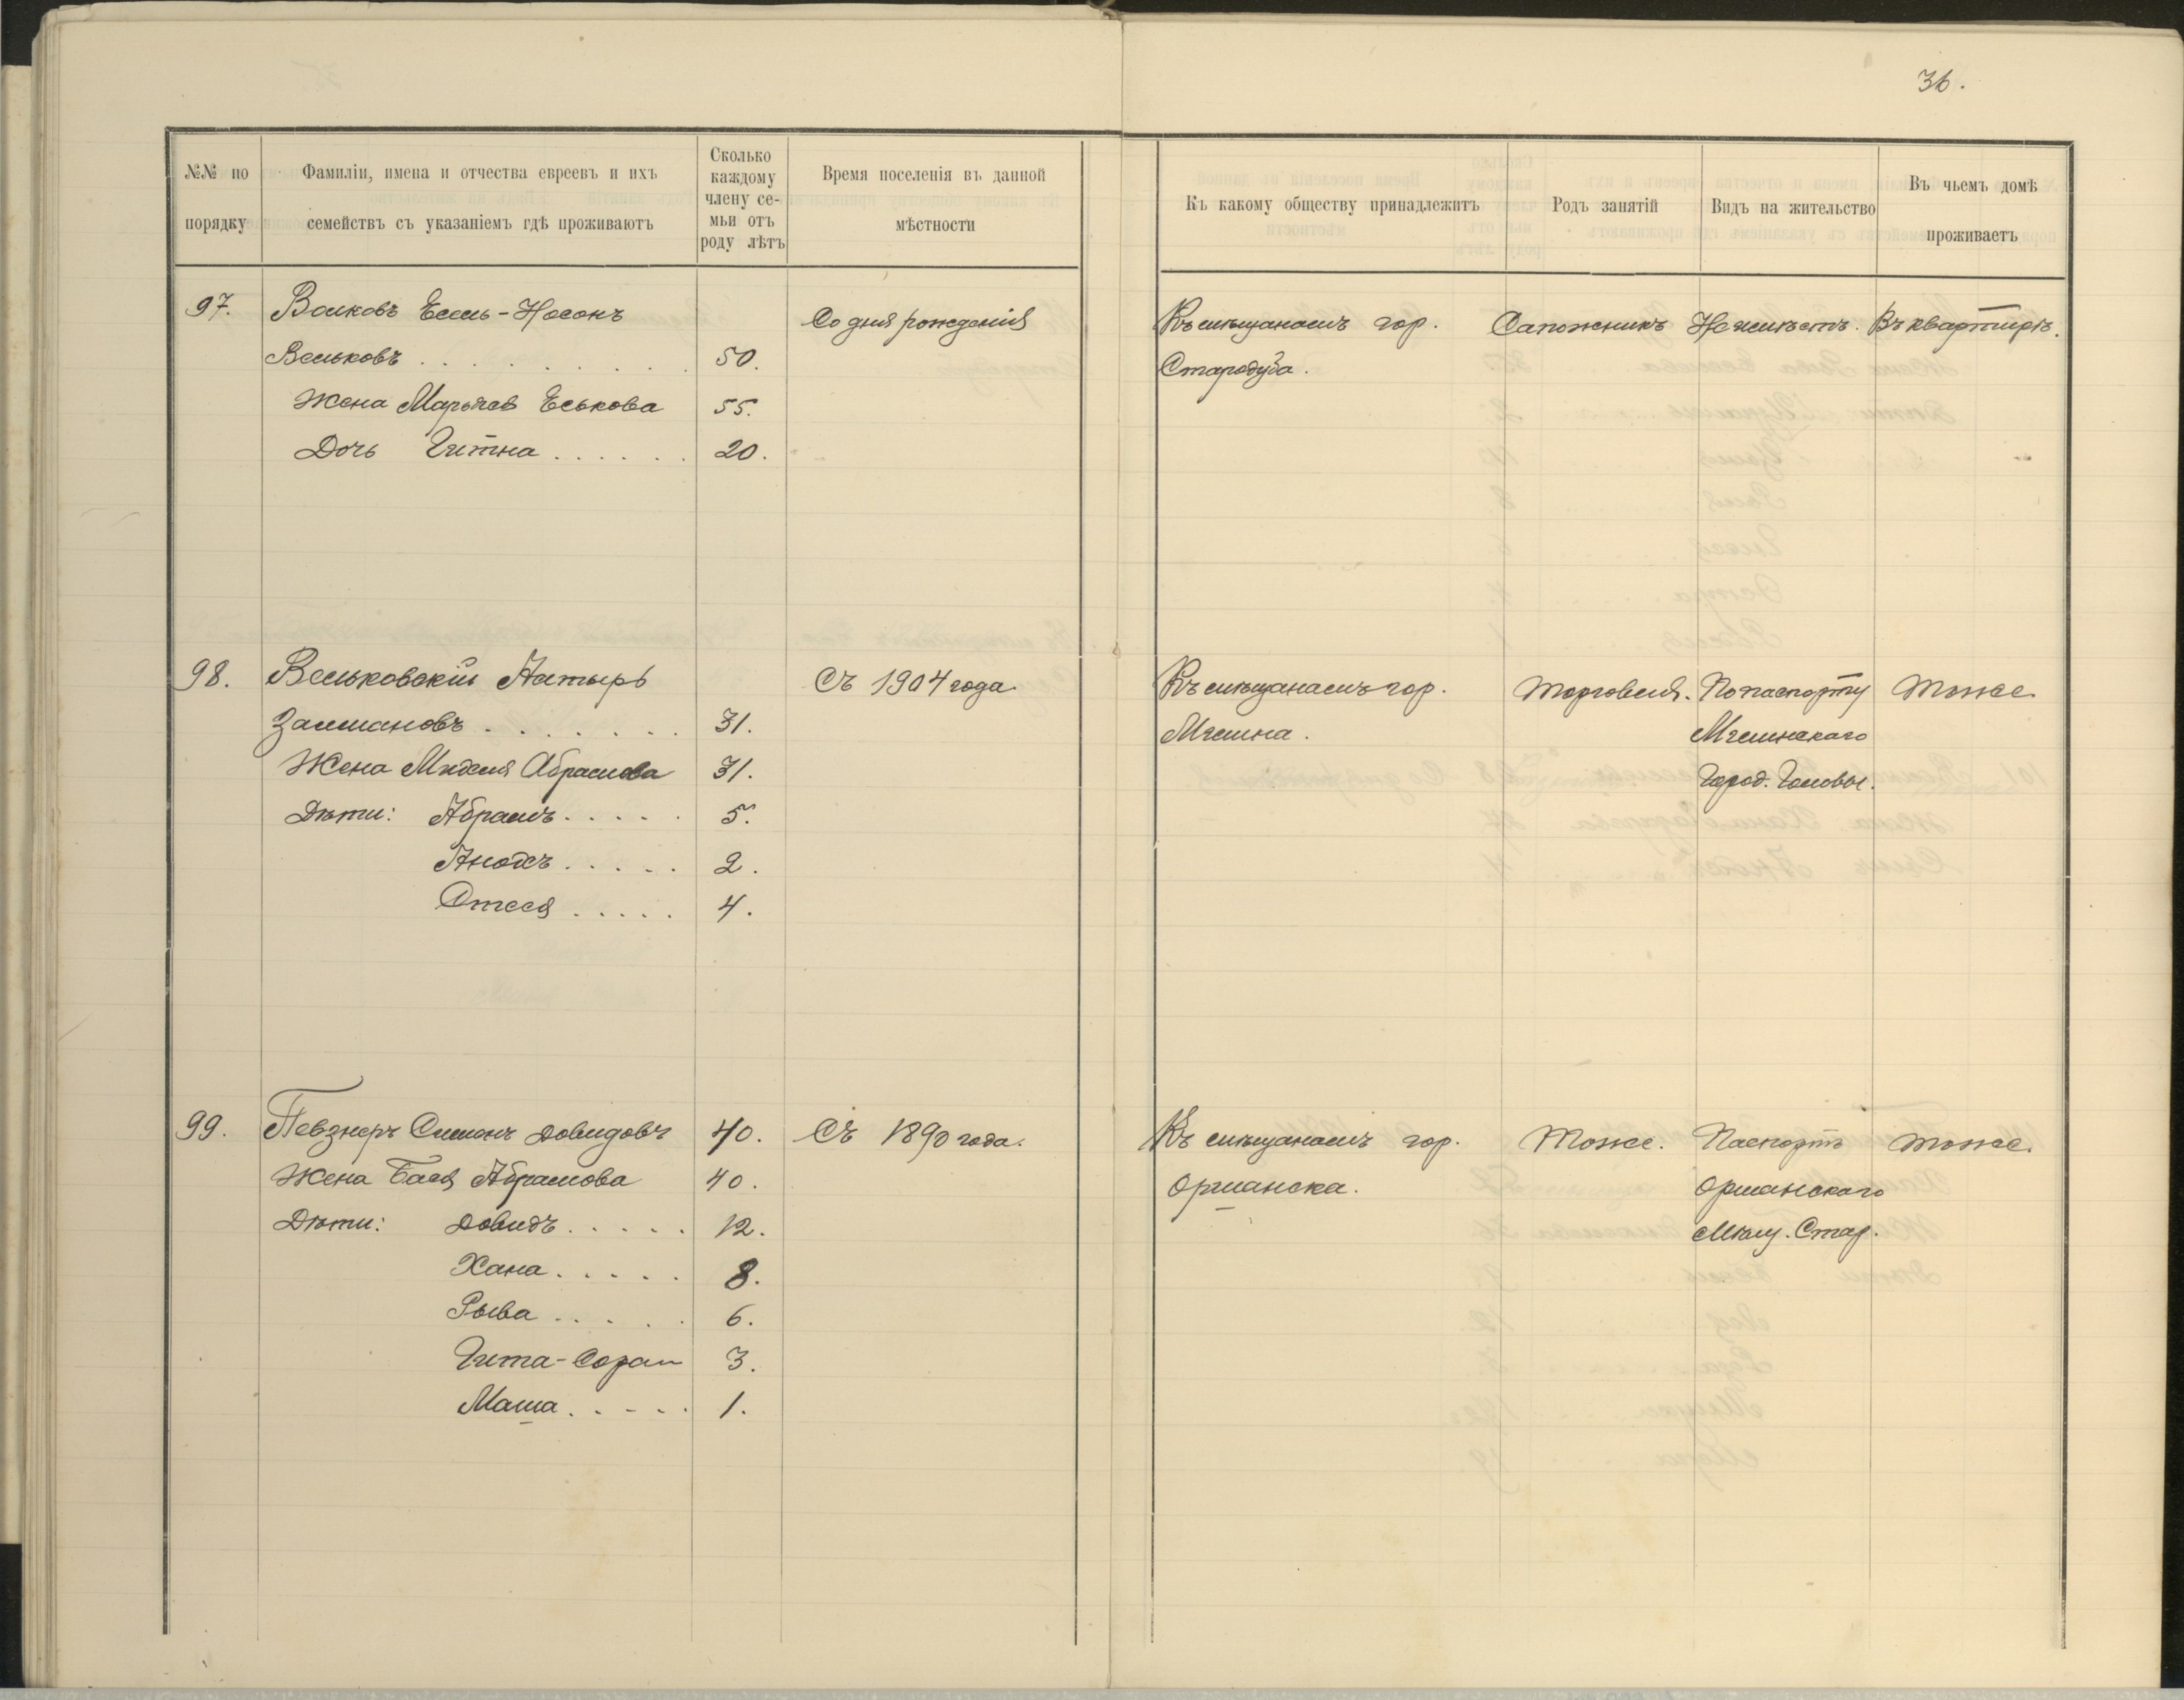 36.
№№ по порядку
Фамиліи, имена и отчества евреевъ и ихъ семействъ съ указаніемъ гдѣ проживаютъ
Сколько каждому члену се-мьи отъ роду лѣтъ
Время поселенія въ данной мѣстности
Къ какому обществу принадлежитъ
Родъ занятій
Видъ на жительство
Въ чьемъ домѣ проживаетъ
97. Волковъ Есель-Носонъ Со дня рожденія Къ мѣщанамъ гор. Сапожникъ Неимѣетъ. Въ квартирѣ.
Вельковъ . . . . . . . 50. Стародуба.
Жена Еськова 55.
Дочь Гитна . . . . . . 20.
98. Вельковскій Съ 1904 года. Къ мѣщанамъ гор. Торговля. По паспорту Тоже.
Залмановъ . . . . . . . 31. Мглина. Мглинскаго
Жена Абрамова 31. Город. Головы.
Дѣти: Абрамъ . . . . . 5.
. . . . . 2.
. . . . . 4.
99. Певзнеръ Симонъ Довидовъ 40. Съ 1890 года. Къ мѣщанамъ гор. Тоже. Паспортъ Тоже.
Жена Бася Абрамова 40. Оршанска. Оршанскаго
Дѣти: Довидъ . . . . . 12. Мѣщ. Стар.
Хана . . . . . 8.
Рыва . . . . . 6.
Гита-Сора 3.
Маша . . . . . 1.